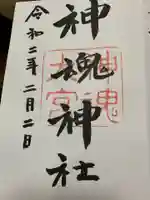 神魂神社
令和二年二月二日
神魂
大宮